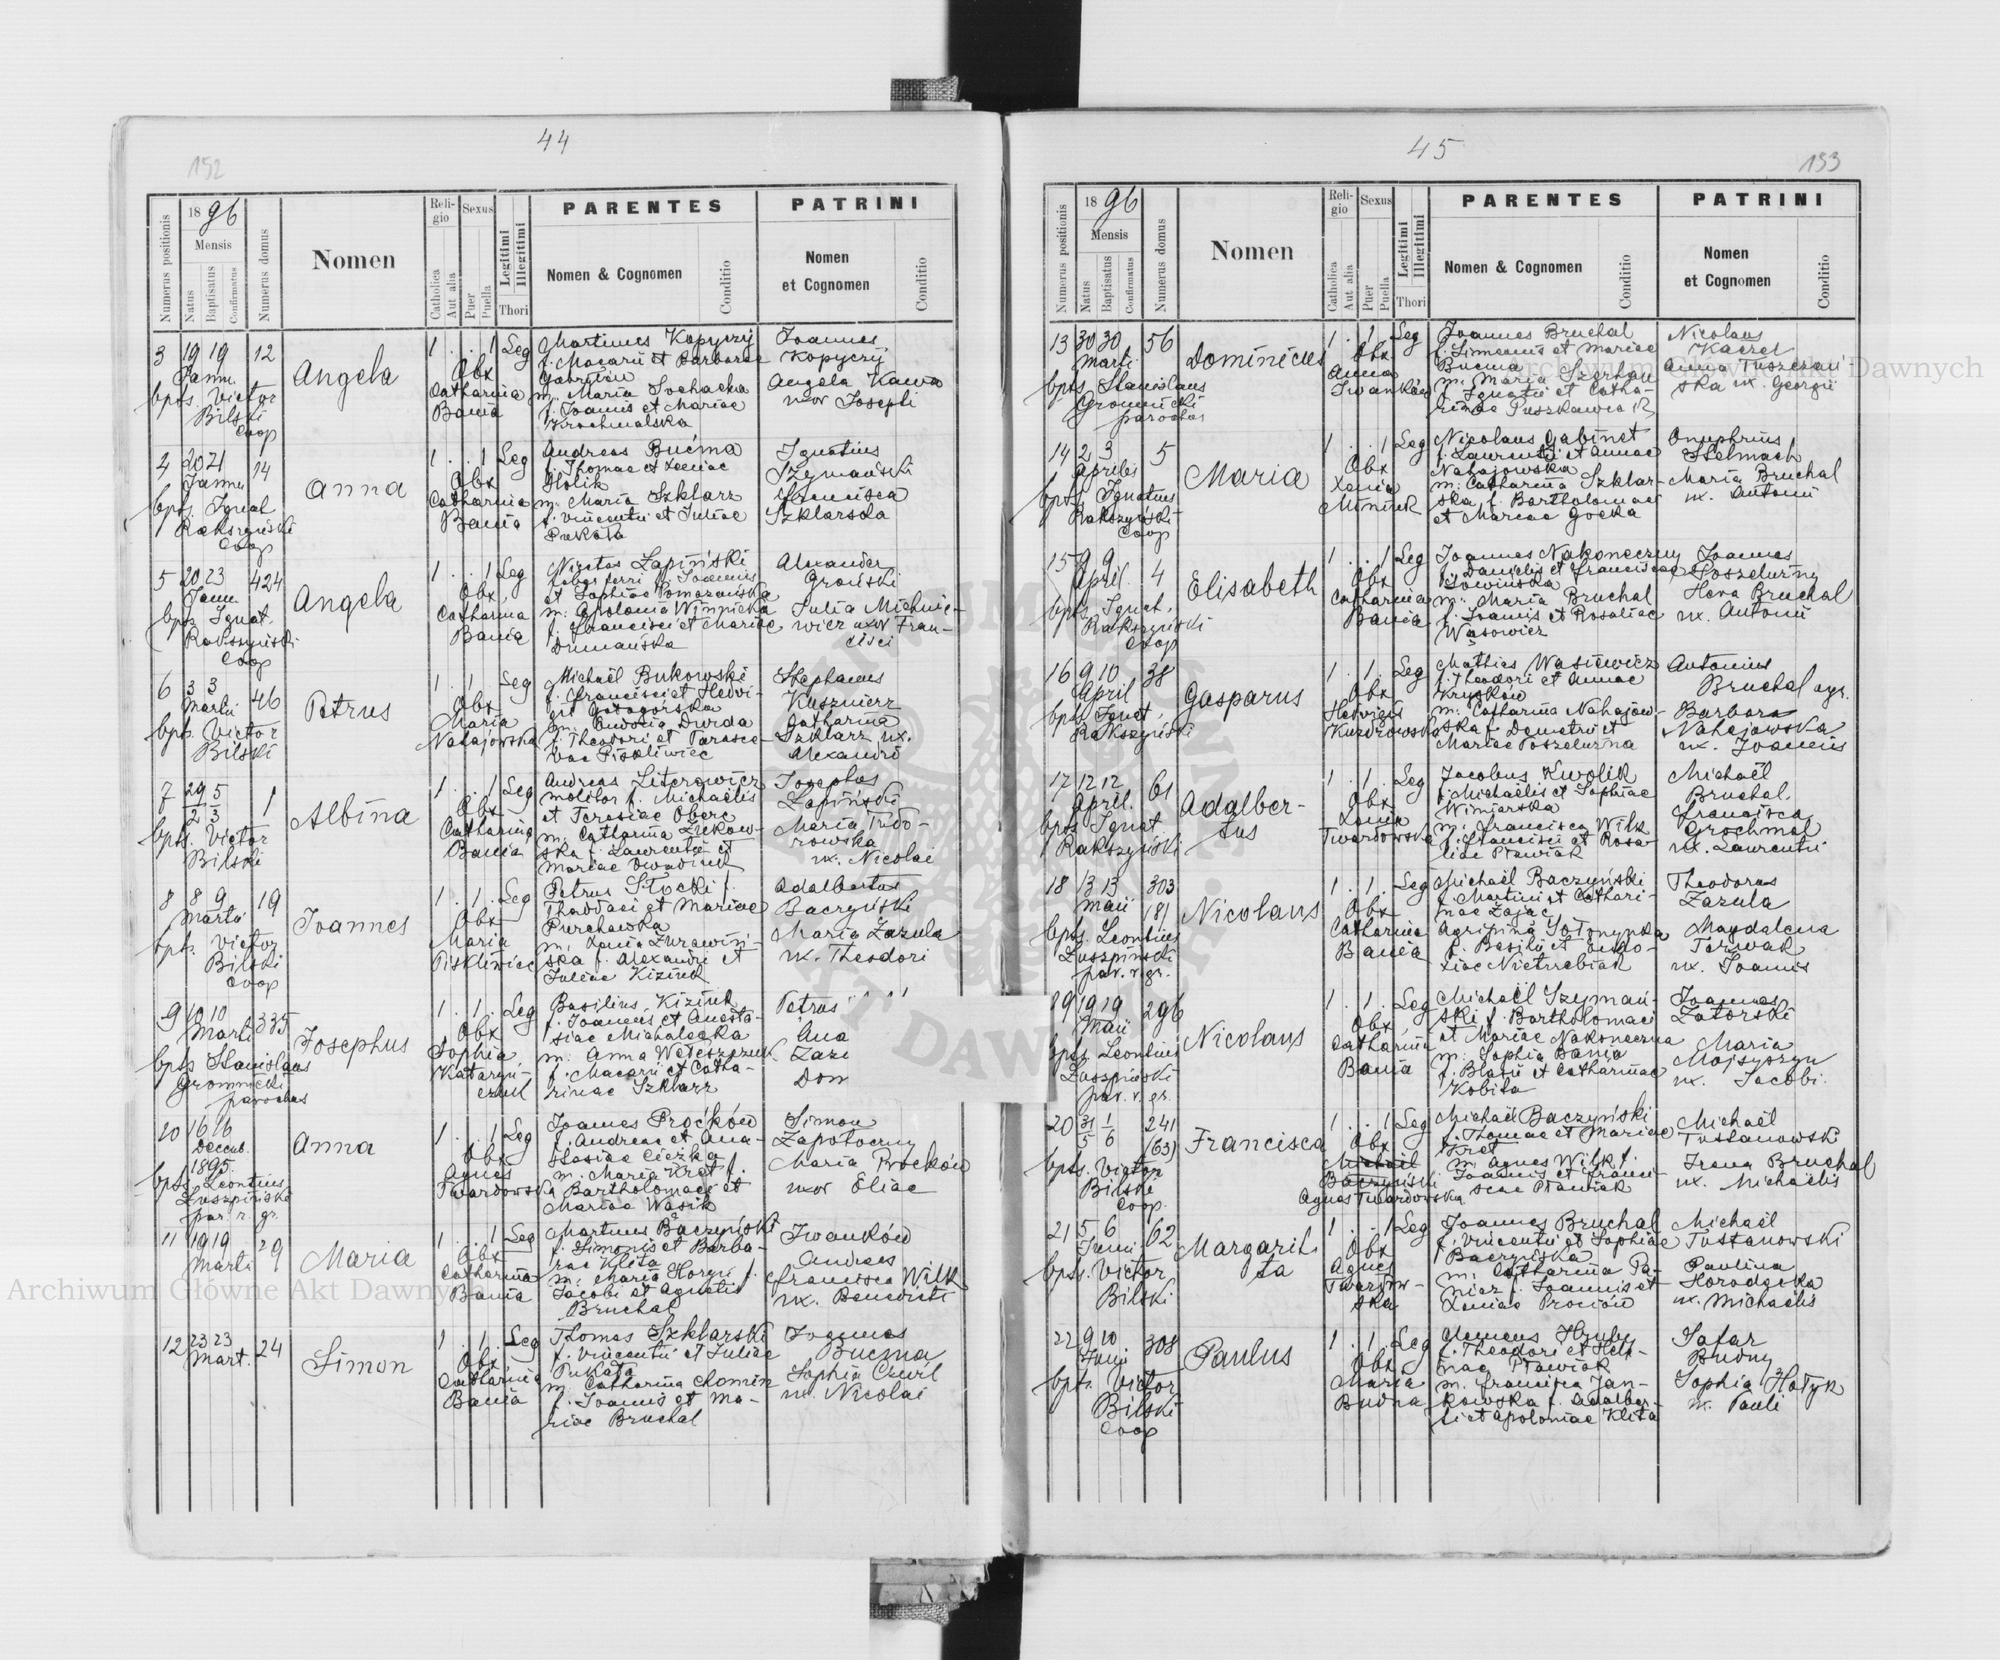 44
152
Numerus positionis
1896
Mensis
Natus
Baptisatus
Confirmatus
Numerus domus
Nomen
Reli-
gio
Catholica
Aut alia
Sexus
Puer
Puella
Legitimi
Illegitimi
Thori
PARENTES
Nomen & Cognomen
Conditio
PATRINI
Nomen
et Cognomen
Conditio
3 19 19 12
Janu.
bpts. Victor
Bilski
Coop
Angela
1 . . 1 Leg
Obx
Catharina
Bania
Martinus Kopyczy
f. Macarii et Barbarae
m. Maria Sochacka
f. Joannis et Mariae
Krochmalska
Joannes
Kopyczy
Angela Kawa
uxor Josephi
4 20 21 14
Janu
bpts. Ignat
Rakszyński
Coop
Anna
1 . . 1 Leg
Obx
Catharina
Bania
Andreas Bućma
f. Thomae et Xeniae
Holik
m. Maria Szklarz
f. Vincentii et Juliae
Pukała
Ignatius
Szymański
Francisca
Szklarska
5 20 23 424
Janu.
bpts. Ignat.
Rakszyński
Coop
Angela
1 . . 1 Leg
Obx
Catharina
Bania
Nicetas Łapiński
et Sophiae Pomazańska
m. Apolonia Winnicka
f. Francisci et Mariae
Dumańska
Alexander
Groński
Julia Michnie-
wicz uxor Fran-
cisci
6 3 3 46
Martii
bpts. Victor
Bilski
Petrus
1 . 1 . Leg
Obx
Maria
Nahajowska
Michaël Bukowski
f. Francisci et Hedvi-
m. Eudoxia Durda
f. Theodori et Parasce-
vae Piskliwiec
Stephanus
Kusznierz
Catharina
Szklarz ux.
Alexandri
7 29 5 1
2 3
bpts. Victor
Bilski
Albina
1 . . 1 Leg
Obx
Catharina
Bania
Andreas Literowicz
molitor f. Michaëlis
et Teresiae Oberc
m. Catharina Żukow-
ska f. Laurentii et
Mariae
Josephus
Łapiński
Maria Fedo-
rowska
ux. Nicolai
8 8 9 19
Martii
bpts. Victor
Bilski
Coop
Joannes
1 . 1 . Leg
Obx
Maria
Piskliwiec
Petrus Stocki f.
Thaddaei et Mariae
Purchawka
m. Xenia Żurawiń-
ska f. Alexandri et
Juliae Kiziuk
Adalbertus
Baczyński
Maria Zazula
ux. Theodori
9 10 10 335
Marti
bpts. Stanislaus
Gromnicki
parochus
Josephus
1 . 1 . Leg
Obx
Sophia
Katarzyń-
czuk
Basilius Kiziuk
f. Joannis et Anasta-
siae Michalecka
m. Anna Weleszczuk
f. Macarii et Catha-
rinae Szklarz
Petrus
Ana
Zazu
Dom
10 16 16
Decemb.
1895.
bpts. Leontius
Łuszpiński
par. r. gr.
Anna
1 . . 1 Leg
Obx
Agnes
Twardowska
Joannes Proćków
f. Andreae et Ana-
stasiae Ciezka
m. Maria Kret f.
Bartholomaei et
Mariae Wąsik
Simon
Zapotoczny
Maria Proćków
uxor Eliae
11 19 19 29
Marti
Maria
1 . . 1 Leg
Obx
Catharina
Bania
Martinus Baczyński
f. Simonis et Barba-
rae Klita
m. Maria Horyń f.
Jacobi et Agnetis
Bruchal
Iwanków
Andreas
Francisca Wilk
ux. Benedicti
12 23 23 24
Mart.
Simon
1 . 1 . Leg
Obx
Catharina
Bania
Thomas Szklarski
f. Vincentii et Juliae
Pukała
m. Catharina Chomin
f. Joannis et Ma-
riae Bruchal
Joannes
Bućma
Sophia Czuril
ux. Nicolai
45
153
Numerus positionis
1896
Mensis
Natus
Baptisatus
Confirmatus
Numerus domus
Nomen
Reli-
gio
Catholica
Aut alia
Sexus
Puer
Puella
Legitimi
Illegitimi
Thori
PARENTES
Nomen & Cognomen
Conditio
PATRINI
Nomen
et Cognomen
Conditio
13 30 30 56
Marti
bpts. Stanislaus
Gromnicki
parochus
Dominicus
1 . 1 . Leg
Obx
Anna
Iwanków
Joannes Bruchal
f. Simeonis et Mariae
Bucma
m. Maria
f. Ignatii et Catha-
rinae
Nicolaus
Kaczel
Anna
ska ux. Georgii
14 2 3 5
Aprilis
bpts. Ignatius
Rakszyński
Coop
Maria
1 . . 1 Leg
Obx
Xenia
Nicolaus Gabinet
f. Laurentii et Annae
Nahajowska
m. Catharina Szklar-
ska f. Bartholomaei
et Mariae Gocka
Onuphrius
Stelmach
Maria Bruchal
ux. Antonii
15 9 9 4
April.
bpts. Ignat.
Rakszyński
Coop
Elisabeth
1 . . 1 Leg
Obx
Catharina
Bania
Joannes Nakoneczny
f. Danielis et Franciscae
m. Maria Bruchal
f. Joannis et Rosaliae
Wąsowicz
Joannes
Poszelużny
Hava Bruchal
ux. Antonii
16 9 10 38
April
bpts. Ignat.
Rakszyński
Gasparus
1 . 1 . Leg
Obx
Hedvigis
Kudrowska
Mathias Wasiewicz
f. Theodori et Annae
Kryśków
m. Catharina Nahajow-
ska f. Demetrii et
Mariae Poszelużna
Antonius
Bruchal agr.
Barbara
Nahajowska
ux. Joannis
17 12 12 61
April.
bpts. Ignat
Rakszyński
Adalber-
tus
1 . 1 . Leg
Obx
Xenia
Twardowska
Jacobus Kwolik
f. Michaëlis et Sophiae
Winiarska
m. Francisca Wilk
f. Francisci et Rosa-
liae Ptawiak
Michaël
Bruchal.
Francisca
Grochmal
ux. Laurentii
18 13 13 303
Maii (81)
bpts. Leontius
Łuszpiński
par. r. gr.
Nicolaus
1 . 1 . Leg
Obx
Catharina
Bania
Michaël Baczyński
f. Martini et Cathari-
nae Zając
Agripina Sołonynka
f. Basilii et Eudo-
xiae Nietrzebiak
Theodorus
Zazula
Magdalena
Terwak
ux. Joannis
19 19 19 296
Maii
bpts. Leontius
Łuszpiński
par. r. gr.
Nicolaus
1 . 1 . Leg
Obx
Catharina
Bania
Michaël Szymań-
ski f. Bartholomaei
et Mariae Nakoneczna
m. Sophia Bania
f. Blasii et Catharinae
Kobita
Joannes
Zatorski
Maria
Mojsyszyn
ux. Jacobi.
20 31 1 241
5 6 (63)
bpts. Victor
Bilski
Coop.
Francisca
1 . . 1 Leg
Obx
Michaël
Baczyński
Agnes Twardowska
Michaël Baczyński
f. Thomae et Mariae
Kret
m. Agnes Wilk f.
Joannis et Franci-
scae Ptawiak
Michaël
Tustanowski
Irena Bruchal
ux. Michaëlis
21 5 6 62
Junii
bpts. Victor
Bilski
Margari-
ta
1 . . 1 Leg
Obx
Agnes
Twardow-
ska
Joannes Bruchal
f. Vincentii et Sophiae
Baczyńska
m. Catharina Pa-
f. Joannis et
Xeniae Prociów
Michaël
Tustanowski
Paulina
Horodecka
ux. Michaëlis
22 9 10 308
Junii
bpts. Victor
Bilski
Coop
Paulus
1 . 1 . Leg
Obx
Maria
Budna
Clemens
f. Theodori et Hele-
nae Ptawiak
m. Francisca Jan-
kowska f. Adalber-
ti et Apoloniae Klita
Safat
Budny
Sophia Hołyk
ux. Pauli
Archiwum Główne Akt Dawnych
Archiwum Główne Akt Dawnych